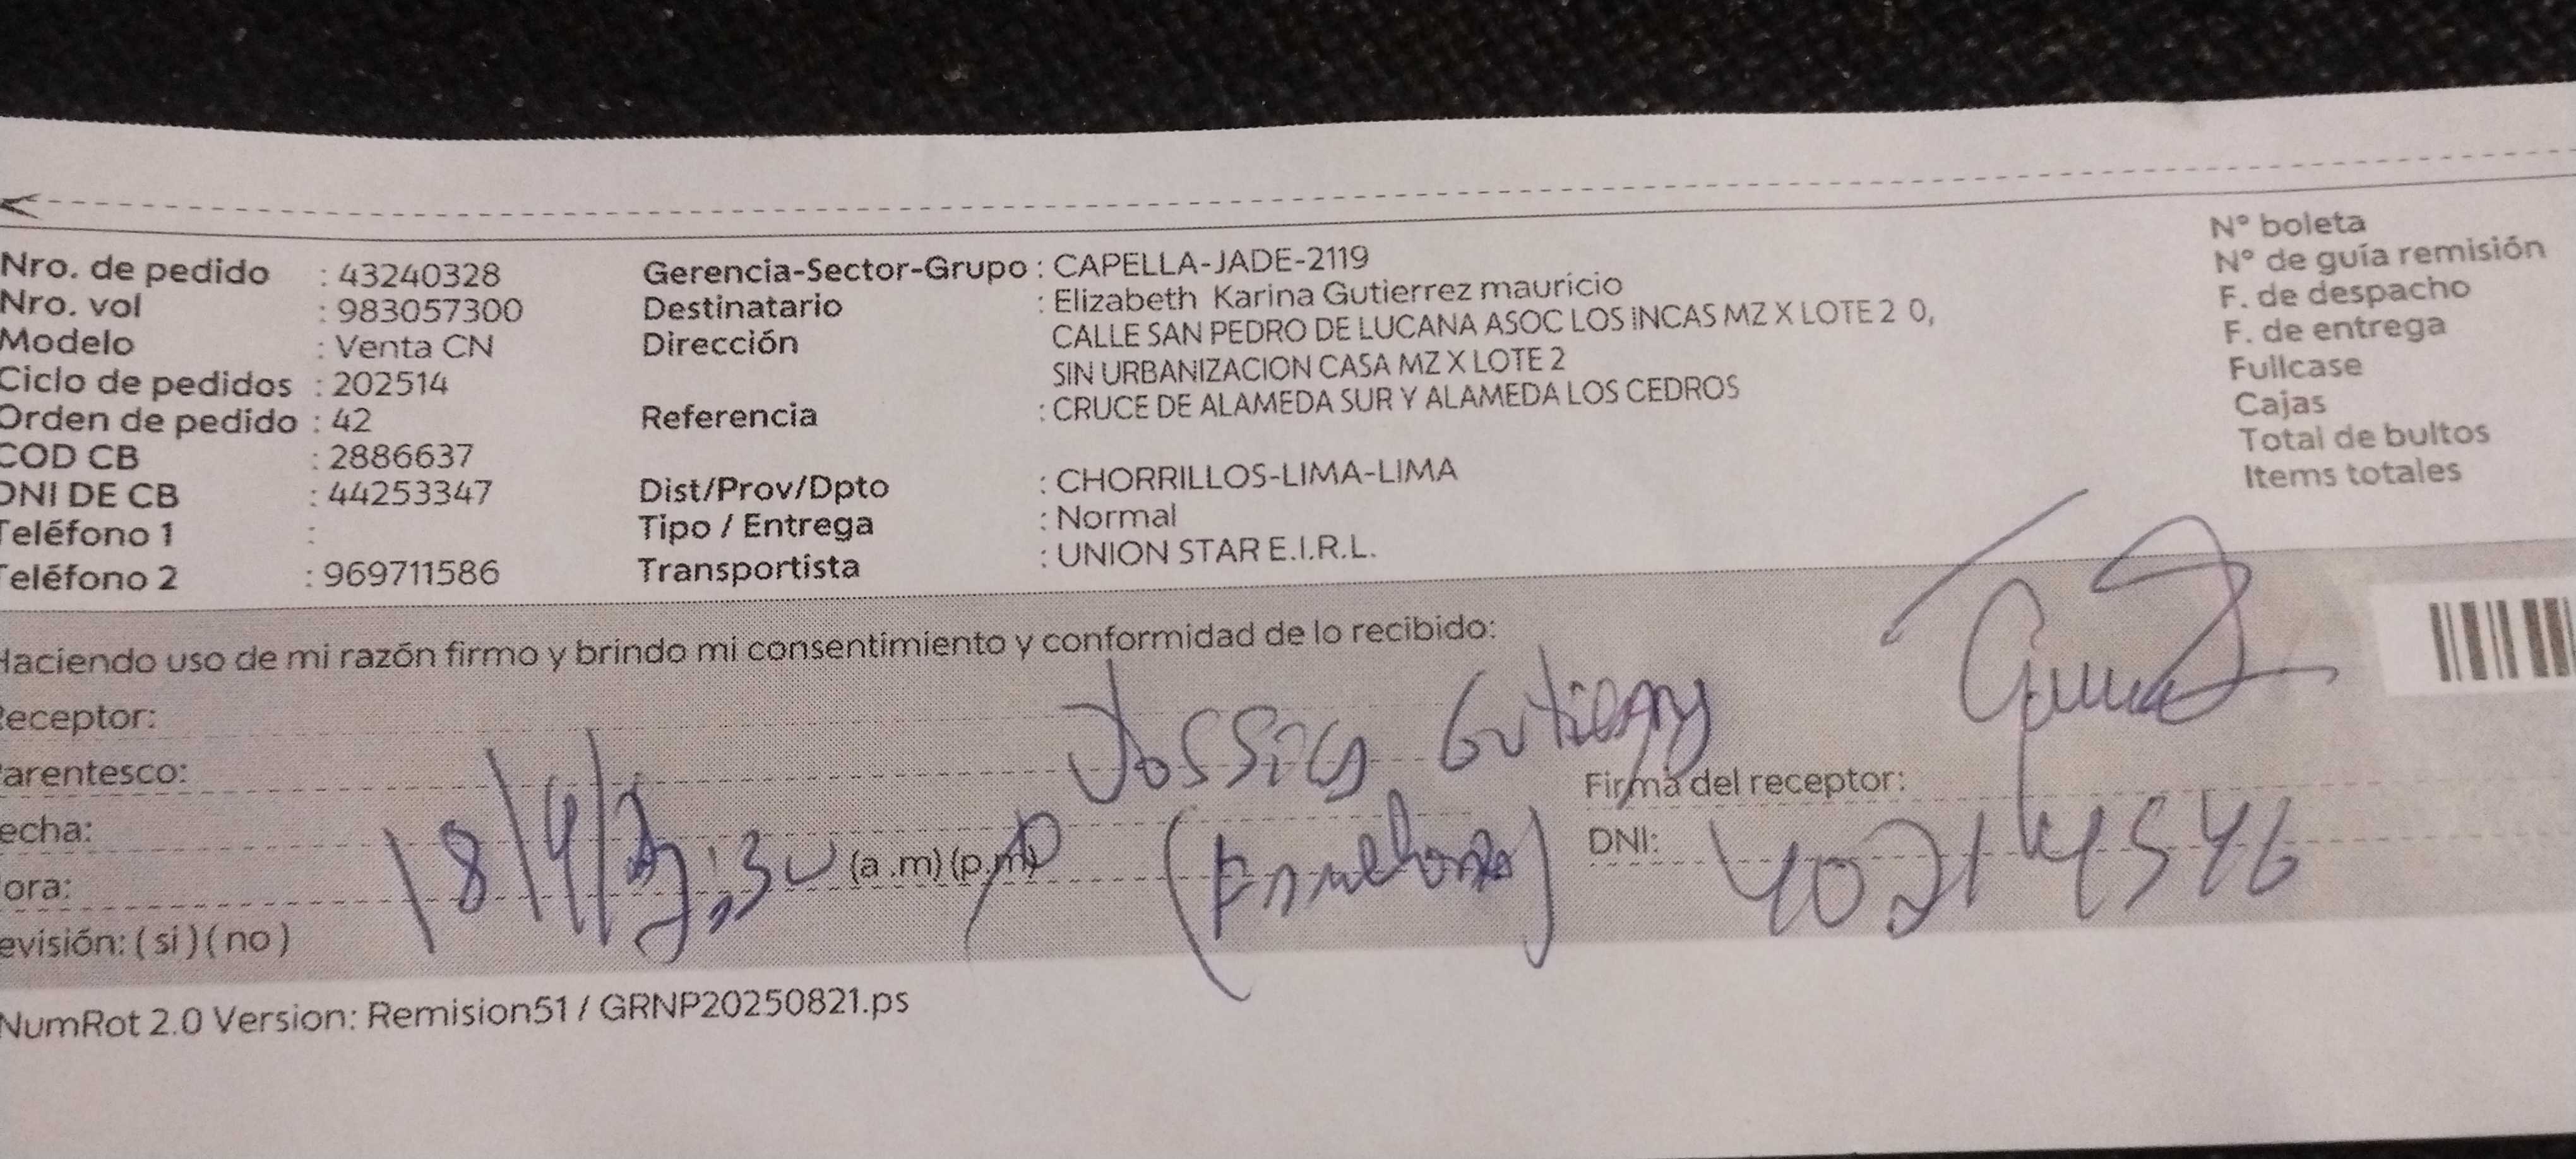 Nro. de pedido : 43240328
Nro. vol : 983057300
Modelo : Venta CN
Ciclo de pedidos : 202514
Orden de pedido : 42
COD CB : 2886637
DNI DE CB : 44253347
Teléfono 1 :
Teléfono 2 : 969711586
Gerencia-Sector-Grupo : CAPELLA-JADE-2119
Destinatario : Elizabeth Karina Gutierrez mauricio
Dirección CALLE SAN PEDRO DE LUCANA ASOC LOS INCAS MZ X LOTE 2 0,
SIN URBANIZACION CASA MZ X LOTE 2
Referencia : CRUCE DE ALAMEDA SUR Y ALAMEDA LOS CEDROS
Dist/Prov/Dpto : CHORRILLOS-LIMA-LIMA
Tipo / Entrega : Normal
Transportista : UNION STAR E.I.R.L.
N° boleta
N° de guía remisión
F. de despacho
F. de entrega
Fullcase
Cajas
Total de bultos
Items totales
Haciendo uso de mi razón firmo y brindo mi consentimiento y conformidad de lo recibido:
Receptor:
Parentesco:
echa:
ora: (a .m) (p.m)
evisión: ( si ) ( no )
Gutierrez
Firma del receptor:
DNI: 40214546
NumRot 2.0 Version: Remision51 / GRNP20250821.ps